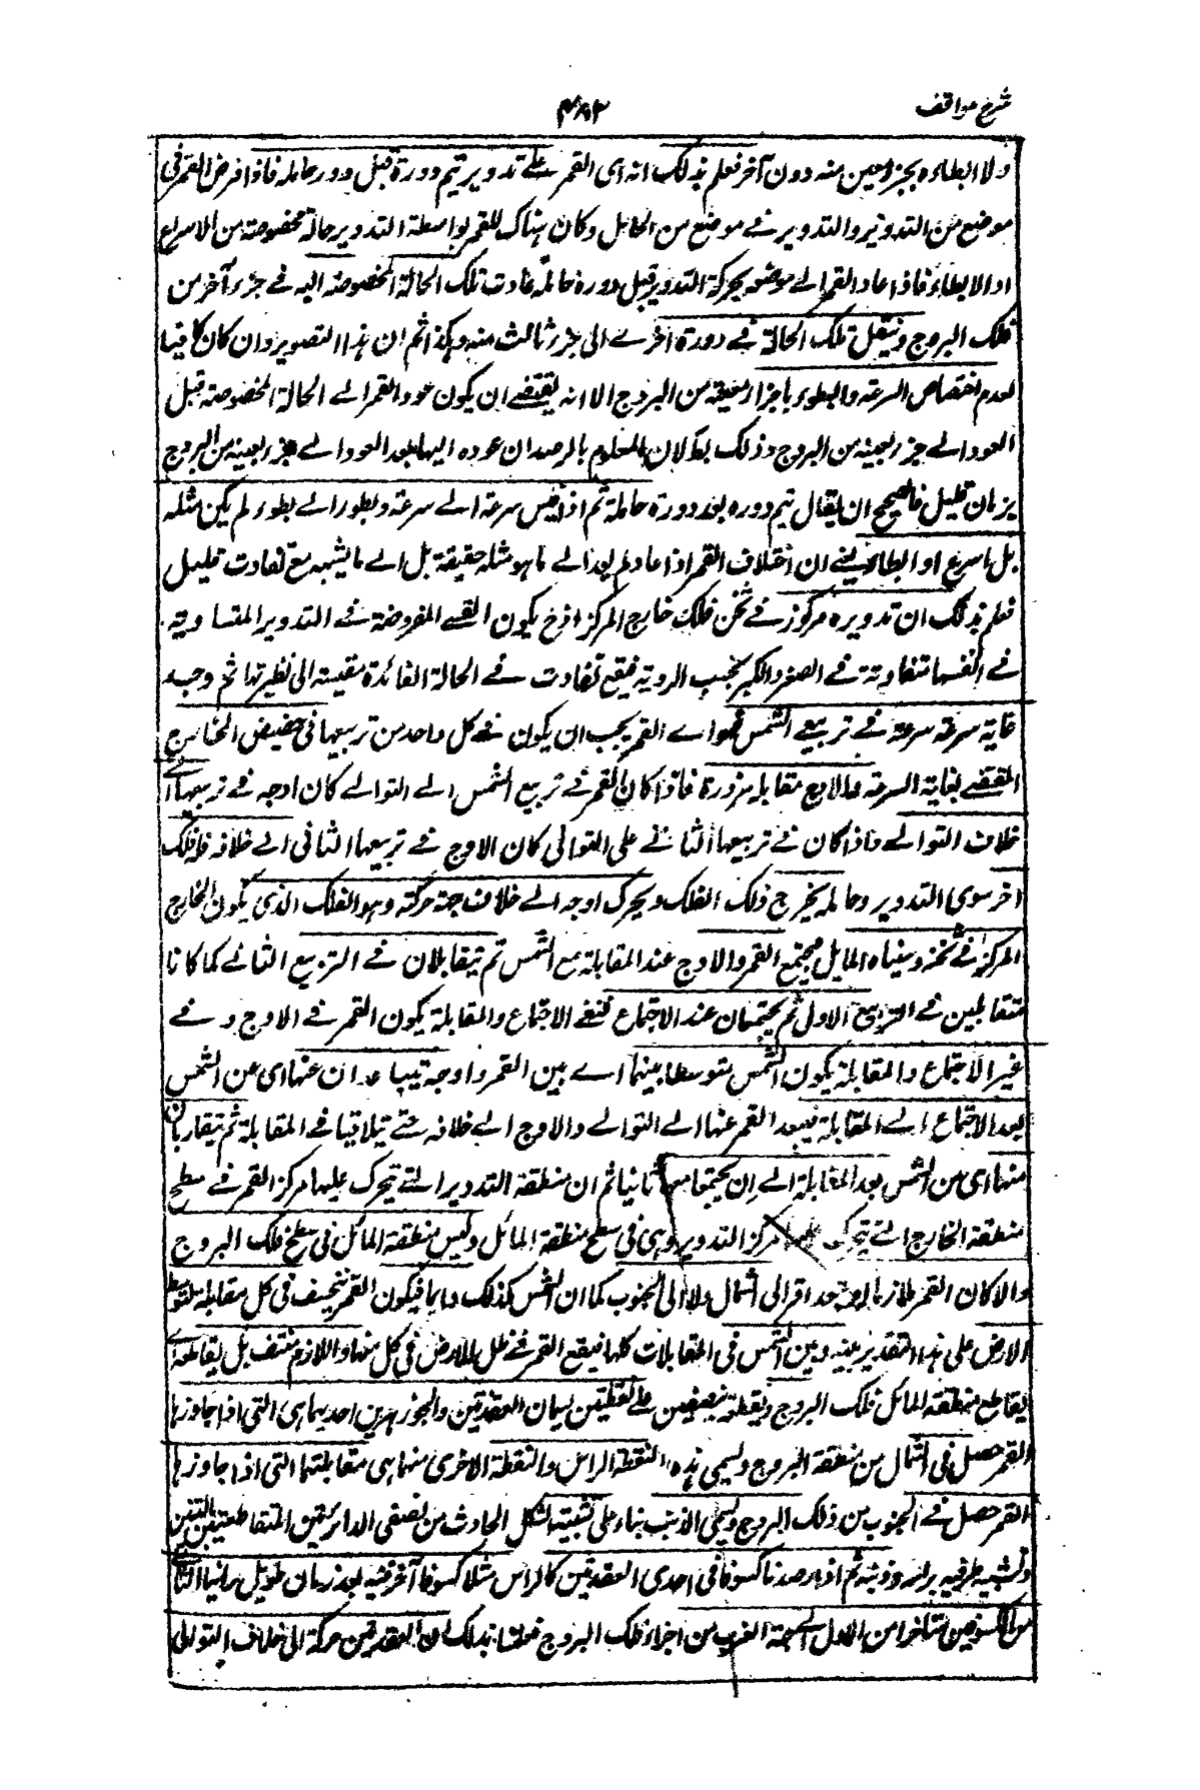 شرح مواقف
۴۸۲
ولا ابطاءه بجزء معين منه دون آخر فعلم بذلك انه اى القمر على تدوير تيم دورة قبل دور حامله فاذا فرض القمر فى
موضع من التدوير والتدوير فى موضع من الحامل وكان هناك للقمر بواسطة التدوير حالة مخصوصة من الاسراع
او الابطاء فاذا عاد القمر الى موضعه بحركة التدوير قبل دورة حامله عادت تلك الحالة المخصوصة اليه فى جزء آخر من
فلك البروج وينتقل تلك الحالة فى دورة اخرى الى جزء ثالث منه وهكذا ثم ان هذا التصوير وان كان كافيا
لعدم اختصاص السرعة والبطوء باجزاء معينة من البروج الا انه يقتضى ان يكون عود القمر الى الحالة المخصوصة قبل
العود الى جزء بعينه من البروج وذلك بط لان المعلوم بالرصد ان عوده اليها بعد العود الى جزء بعينه من البروج
بزمان قليل فالصحيح ان يقال تيم دوره بعد دورة حامله ثم اذا قيس سرعة الى سرعة وبطوء الى بطوء لم يكن مثله
بل اسرع او ابطاء يعنى ان اختلاف القمر اذا عاد لم يعد الى ما هو مثله حقيقة بل الى ما يشبهه مع تفاوت قليل
فعلم بذلك ان تدويره مركوز فى ثخن فلك خارج المركز اذ ح يكون القسى المفروضة فى التدوير المتساوية
فى انفسها متفاوتة فى الصغر والكبر بحسب الروية فيقع تفاوت فى الحالة العائدة مقيسة الى نظيرتها ثم وجد
غاية سرعته سرعة فى تربيعى الشمس فهو اى القمر يجب ان يكون فى كل واحد من تربيعيها فى حضيض الخارج
المقتضى لغاية السرعة فالاوج مقابله ضرورة فاذا كان القمر فى تربيع الشمس الى التوالى كان اوجه فى تربيعها الى
خلاف التوالى واذا كان فى تربيعها الثانى على التوالى كان الاوج فى تربيعها الثانى الى خلافه فله فلك
آخر سوى التدوير وحامله يخرج ذلك الفلك ويحرك اوجه الى خلاف جهة حركته وهو الفلك الذى يكون الخارج
المركز فى ثخنه وسميناه المايل فيجتمع القمر والاوج عند المقابلة مع الشمس ثم يتقابلان فى التربيع الثانى كما كانا
متقابلين فى التربيع الاول ثم يجتمعان عند الاجتماع ففى الاجتماع والمقابلة يكون القمر فى الاوج و فى
غير الاجتماع والمقابلة يكون الشمس متوسطا بينهما اى بين القمر واوجه يتباعدان عنها اى عن الشمس
بعد الاجتماع الى المقابلة فيبعد القمر عنها الى التوالى والاوج الى خلافه حتى يتلاقيا فى المقابلة ثم يتقاربان
منها اى من الشمس بعد المقابلة الى ان يجتمعا معها ثانيا ثم ان منطقة التدوير التى يتحرك عليها مركز القمر فى سطح
منطقة الخارج التى يتحرك عليها مركز التدوير وهى فى سطح منطقة المائل وليس منطقة المائل فى سطح فلك البروج
والا كان القمر ملازما لها الى الشمال ولا الى الجنوب كما ان الشمس كذلك دايما فيكون القمر ينخسف فى كل مقابلة لتوسط
الارض على هذا التقدير بينه وبين الشمس فى المقابلات كلها فيقع القمر فى ظل الارض فى كل منها واللازم منتف بل يقاطعه اى
يقاطع منطقة المائل فلك البروج ويقطعه بنصفين على نقطتين يسميان العقدتين والجوزهرين احديهما هى التى اذا جاوزها
القمر حصل فى الشمال من منطقة البروج ويسمى هذه النقطة الراس والنقطة الاخرى منهما هى مقابلتها التى اذا جاوزها
القمر حصل فى الجنوب من فلك البروج ويسمى الذنب بناء على تشبيه الشكل الحادث من نصفى الدائرتين المتقاطعتين بالتنين
وتشبيه طرفيه براسه وذنبه ثم اذا رصدنا كسوفا فى احدى العقدتين كالراس مثلا كسوفا آخر فيه بعد زمان طويل راينا الثانى
من الكسوفين متأخرا من الاول الى جهة الغرب من اجزاء فلك البروج فعلمنا بذلك ان العقدتين حركة الى خلاف التوالى